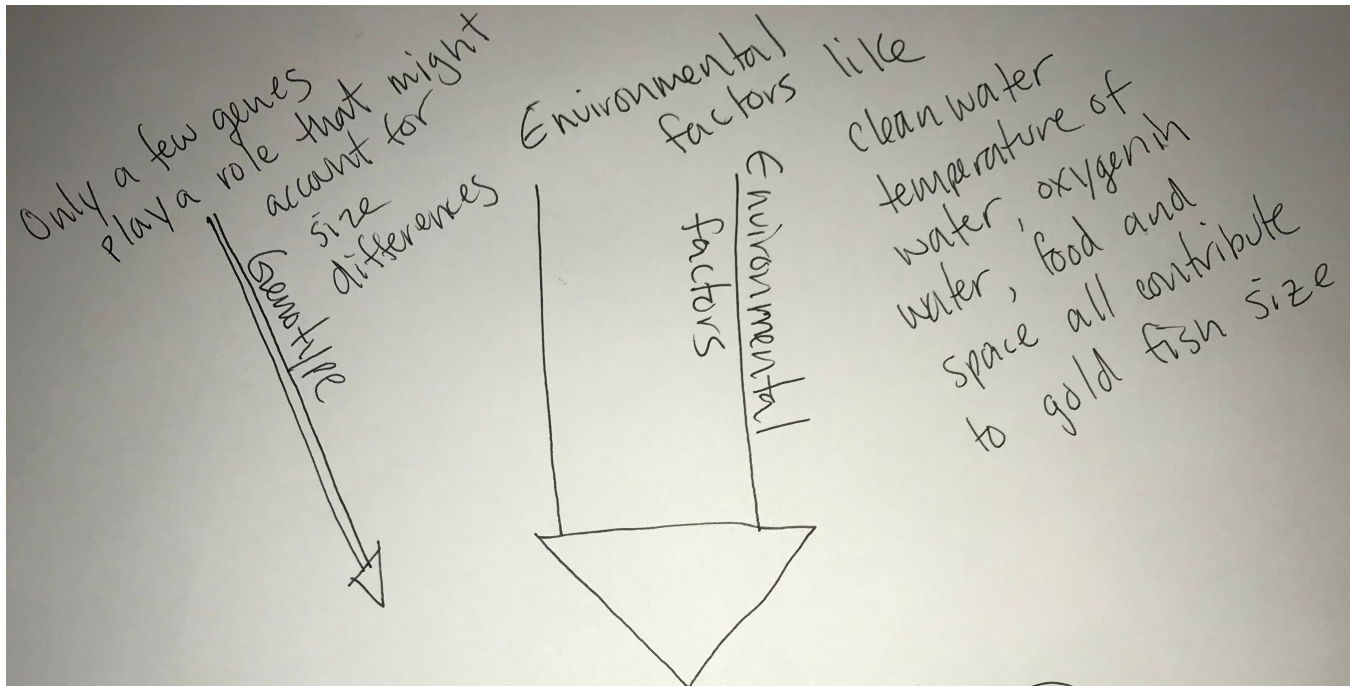 Only a few genes
play a role that might
account for
size
differences
Genotype
Environmental
factors like
clean water
temperature of
water, oxygen in
water, food and
space all contribute
to gold fish size
Environmental
factors